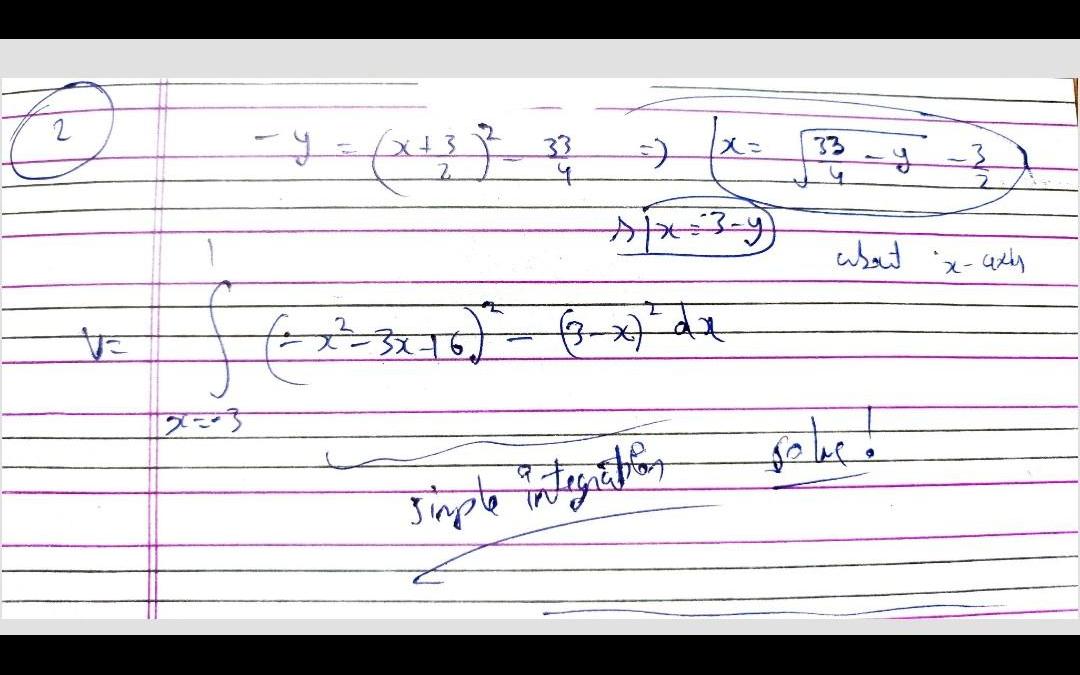 2
- y = (x + 3/2)² - 33/4 => x = √(33/4 - y) - 3/2
x = 3 - y
about x-axis
V = ∫_{x=-3}^{1} (-x² - 3x + 6)² - (3-x)² dx
simple integration solve!